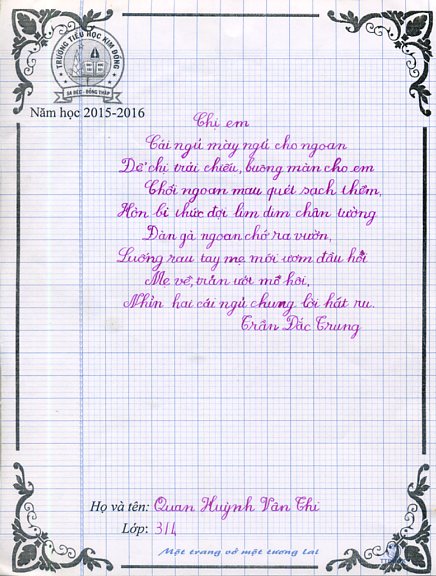 TRƯỜNG TIỂU HỌC KIM ĐỒNG
SA ĐÉC - ĐỒNG THÁP
Năm học 2015-2016
Chị em
Cái ngủ mày ngủ cho ngoan
Để chị trải chiếu, buông màn cho em
Chổi ngoan mau quét sạch thềm,
Hòn bi thức đợi lim dim chân tường
Đàn gà ngoan chớ ra vườn,
Luống rau tay mẹ mới ươm đầu hồi
Mẹ về, trán ướt mồ hôi,
Nhìn hai cái ngủ chung lời hát ru.
Trần Đắc Trung
Họ và tên: Quan Huỳnh Vân Thi
Lớp: 3/4
Một trang vở một tương lai